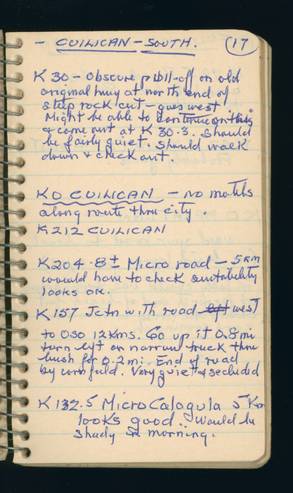 - CUILICAN - SOUTH. (17
K 30 - Obscure pull-off on old
original hwy at north end of
step rock cut - goes west.
Might be able to continue on this
& come out at K 30.3. Should
be fairly quiet. Should walk
down & check out.
K0 CUILICAN - no motels
along route thru city.
K212 CUILICAN
K204.8± Micro road - 5 KM
would have to check suitability
looks ok.
K157 Jctn with road west
to OSO 12 Kms. Go up it 0.8 mi
turn left on narrow track thru
bush for 0.2 mi. End of road
by cornfield. Very quiet & secluded
K 132.5 Micro Calogula 5 Km
looks good. Would be
shady in morning.